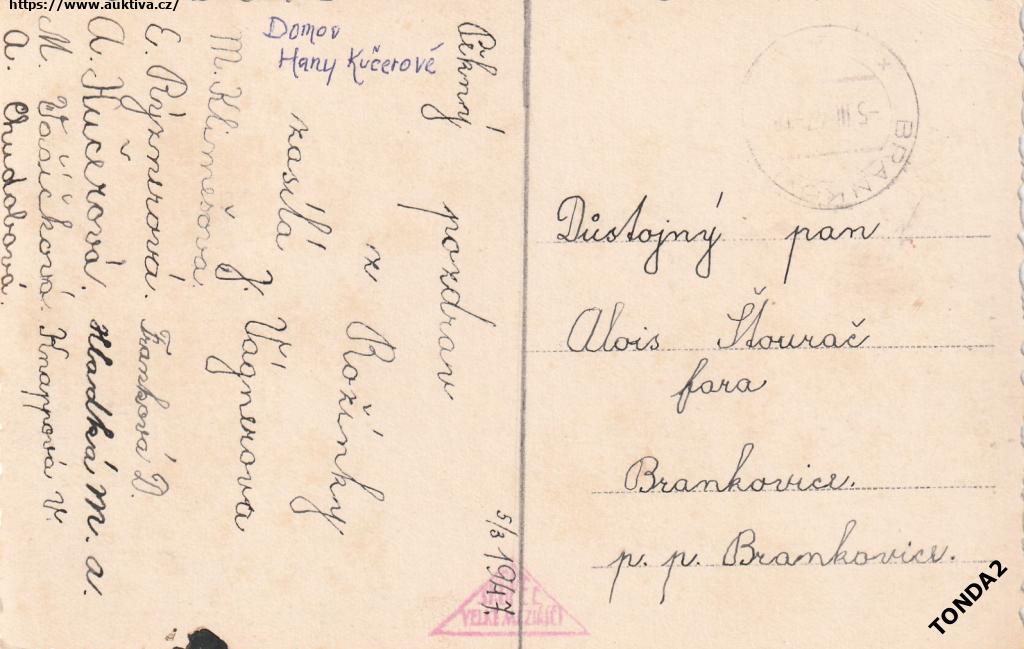 https://www.auktiva.cz/
Domov
Hany Kučerové
Pěkný pozdrav
z Rožínky
zasílá J. Vágnerova
M. Klimešová.
E. Rýznirová. Franková D.
A. Kučerová, Hladká M. a.
M. Vašíčková. Knappová V.
A. Chudobová.
5/3 1947.
VELKÉ MEZIŘÍČÍ
BRANKO
Důstojný pan
Alois Štourač
fara
Brankovice.
p. p. Brankovice.
TONDA2